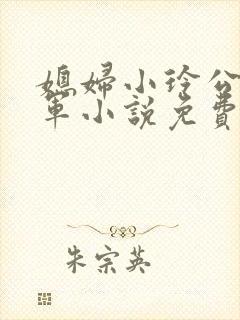 媳婦小玲公
軍小說免費
朱宗英